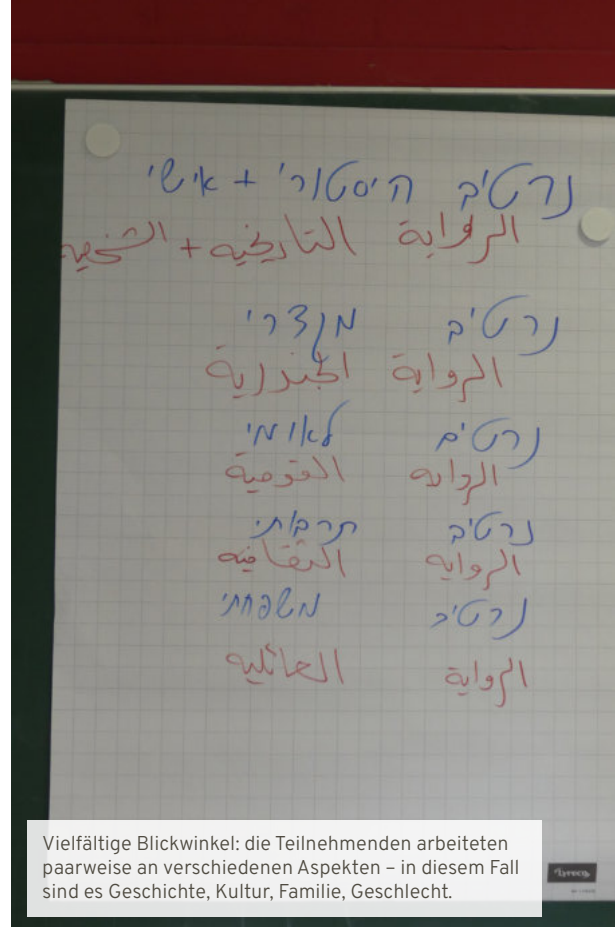 נרטיב היסטורי + אישי
الرواية التاريخية + الشخصية
נרטיב מגדרי
الرواية الجندرية
נרטיב לאומי
الرواية القومية
נרטיב תרבותי
الرواية الثقافية
נרטיב משפחתי
الرواية العائلية
Vielfältige Blickwinkel: die Teilnehmenden arbeiteten
paarweise an verschiedenen Aspekten – in diesem Fall
sind es Geschichte, Kultur, Familie, Geschlecht.